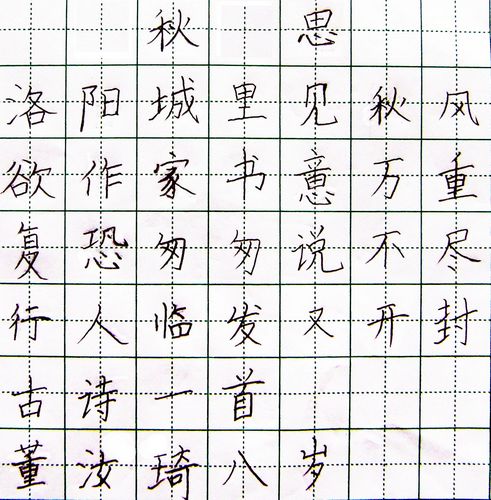 秋思
洛阳城里见秋风
欲作家书意万重
复恐匆匆说不尽
行人临发又开封
古诗一首
董汝琦八岁